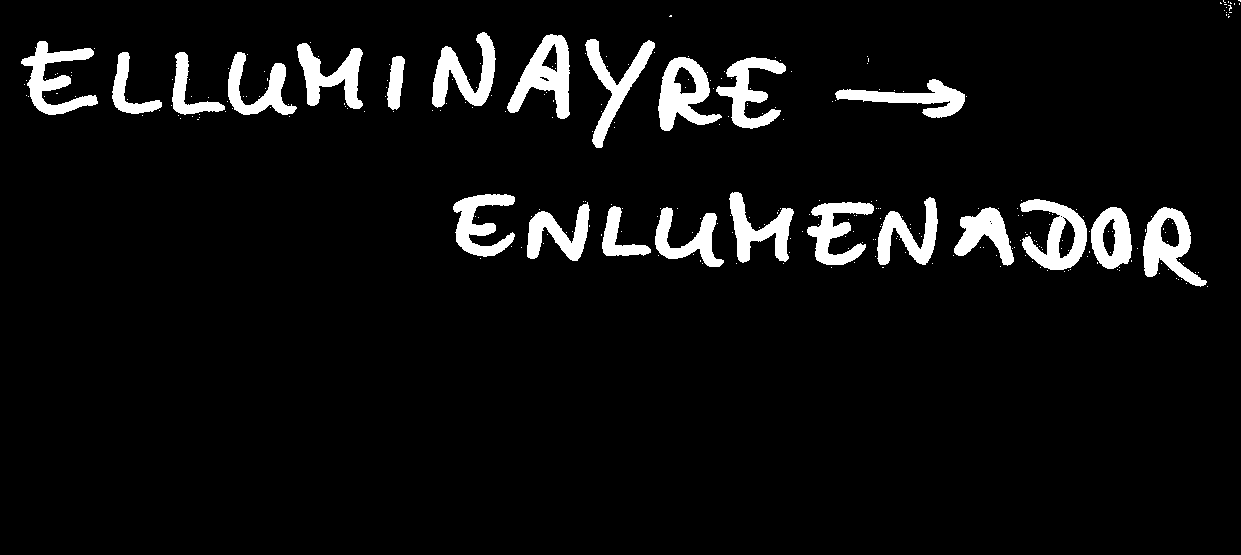 ELLUMINAYRE →
ENLUMENADOR